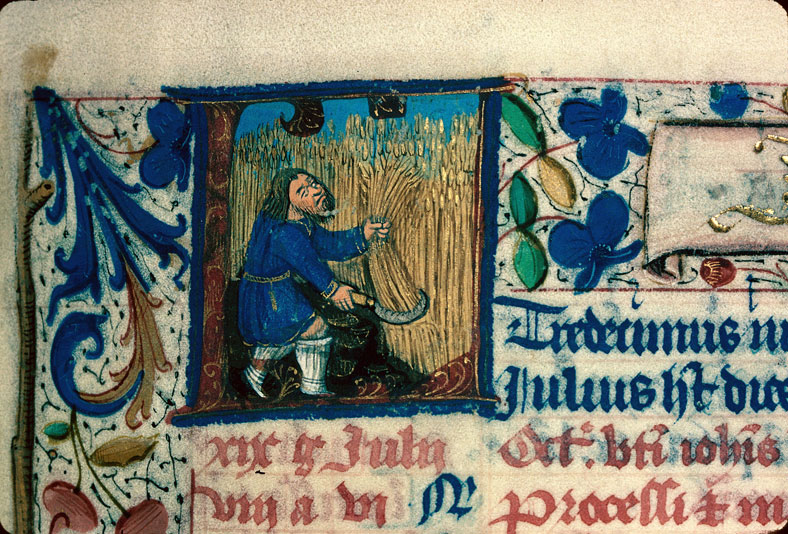 Tredecimus
Julius ht dice
xix g Julii Oct. bti iohis
viij a vi N Processi & m